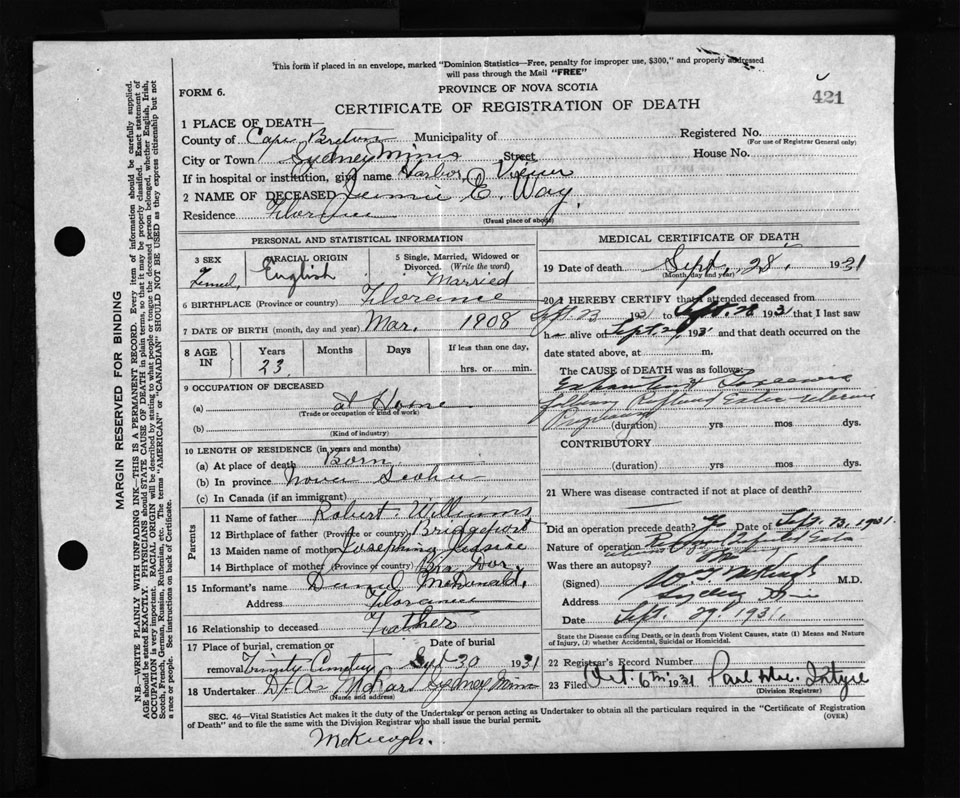 This form if placed in an envelope, marked "Dominion Statistics—Free, penalty for improper use, $300," and properly addressed
will pass through the Mail "FREE"
FORM 6.
PROVINCE OF NOVA SCOTIA
421
CERTIFICATE OF REGISTRATION OF DEATH
1 PLACE OF DEATH—
County of Cape Breton Municipality of Registered No.
(For use of Registrar General only)
City or Town Sydney Mines Street House No.
If in hospital or institution, give name Harbor View
2 NAME OF DECEASED Jennie E. Way.
Residence Florence
(Usual place of abode)
PERSONAL AND STATISTICAL INFORMATION
3 SEX RACIAL ORIGIN 5 Single, Married, Widowed or Divorced. (Write the word)
English Married
6 BIRTHPLACE (Province or country) Florence
7 DATE OF BIRTH (month, day and year) Mar. 1908
8 AGE IN Years Months Days If less than one day,
23 hrs. or min.
9 OCCUPATION OF DECEASED
(a) at Home
(Trade or occupation or kind of work)
(b)
(Kind of industry)
10 LENGTH OF RESIDENCE (in years and months)
(a) At place of death Born
(b) In province Nova Scotia
(c) In Canada (if an immigrant)
Parents
11 Name of father Robert Williams
12 Birthplace of father (Province or country) Bridgeport
13 Maiden name of mother Josephine
14 Birthplace of mother (Province or country) Bra Dor,
15 Informant's name Daniel McDonald,
Address Florence
16 Relationship to deceased Father
17 Place of burial, cremation or removal Date of burial
Trinity Cemetery Sept 30 1931
18 Undertaker D. A. Sydney Mines
(Name and address)
MEDICAL CERTIFICATE OF DEATH
19 Date of death Sept. 28, 1931
(Month, day and year)
20 I HEREBY CERTIFY that I attended deceased from
Sept. 23 1931 to Sept. 28 1931 that I last saw
h alive on Sept. 1931 and that death occurred on
date stated above, at m.
The CAUSE OF DEATH was as follows:
(duration) yrs mos dys.
CONTRIBUTORY
(duration) yrs mos dys.
21 Where was disease contracted if not at place of death?
Did an operation precede death? Date of Sept. 23, 1931.
Nature of operation
Was there an autopsy?
(Signed) M.D.
Address Sydney Mines
Date Sept. 29 1931
State the Disease causing Death, or in death from Violent Causes, state (1) Means and Nature
of Injury, (2) whether Accidental, Suicidal or Homicidal.
22 Registrar's Record Number
23 Filed Oct. 6th 1931
(Division Registrar)
SEC. 46—Vital Statistics Act makes it the duty of the Undertaker or person acting as Undertaker to obtain all the particulars required in the "Certificate of Registration
of Death" and to file the same with the Division Registrar who shall issue the burial permit. (OVER)
McKeogh.
MARGIN RESERVED FOR BINDING
N.B.—WRITE PLAINLY WITH UNFADING INK—THIS IS A PERMANENT RECORD. Every item of information should be carefully supplied.
AGE should be stated EXACTLY. PHYSICIANS should STATE CAUSE OF DEATH in plain terms, so that it may be properly classified. Exact statement of
OCCUPATION is very important. RACIAL ORIGIN will be described by stating to what people or tongue the deceased person belonged, whether English, Irish,
Scotch, French, German, Russian, Ruthenian, etc. The terms "AMERICAN" or "CANADIAN" SHOULD NOT BE USED as they express citizenship but not
a race or people. See instructions on back of Certificate.